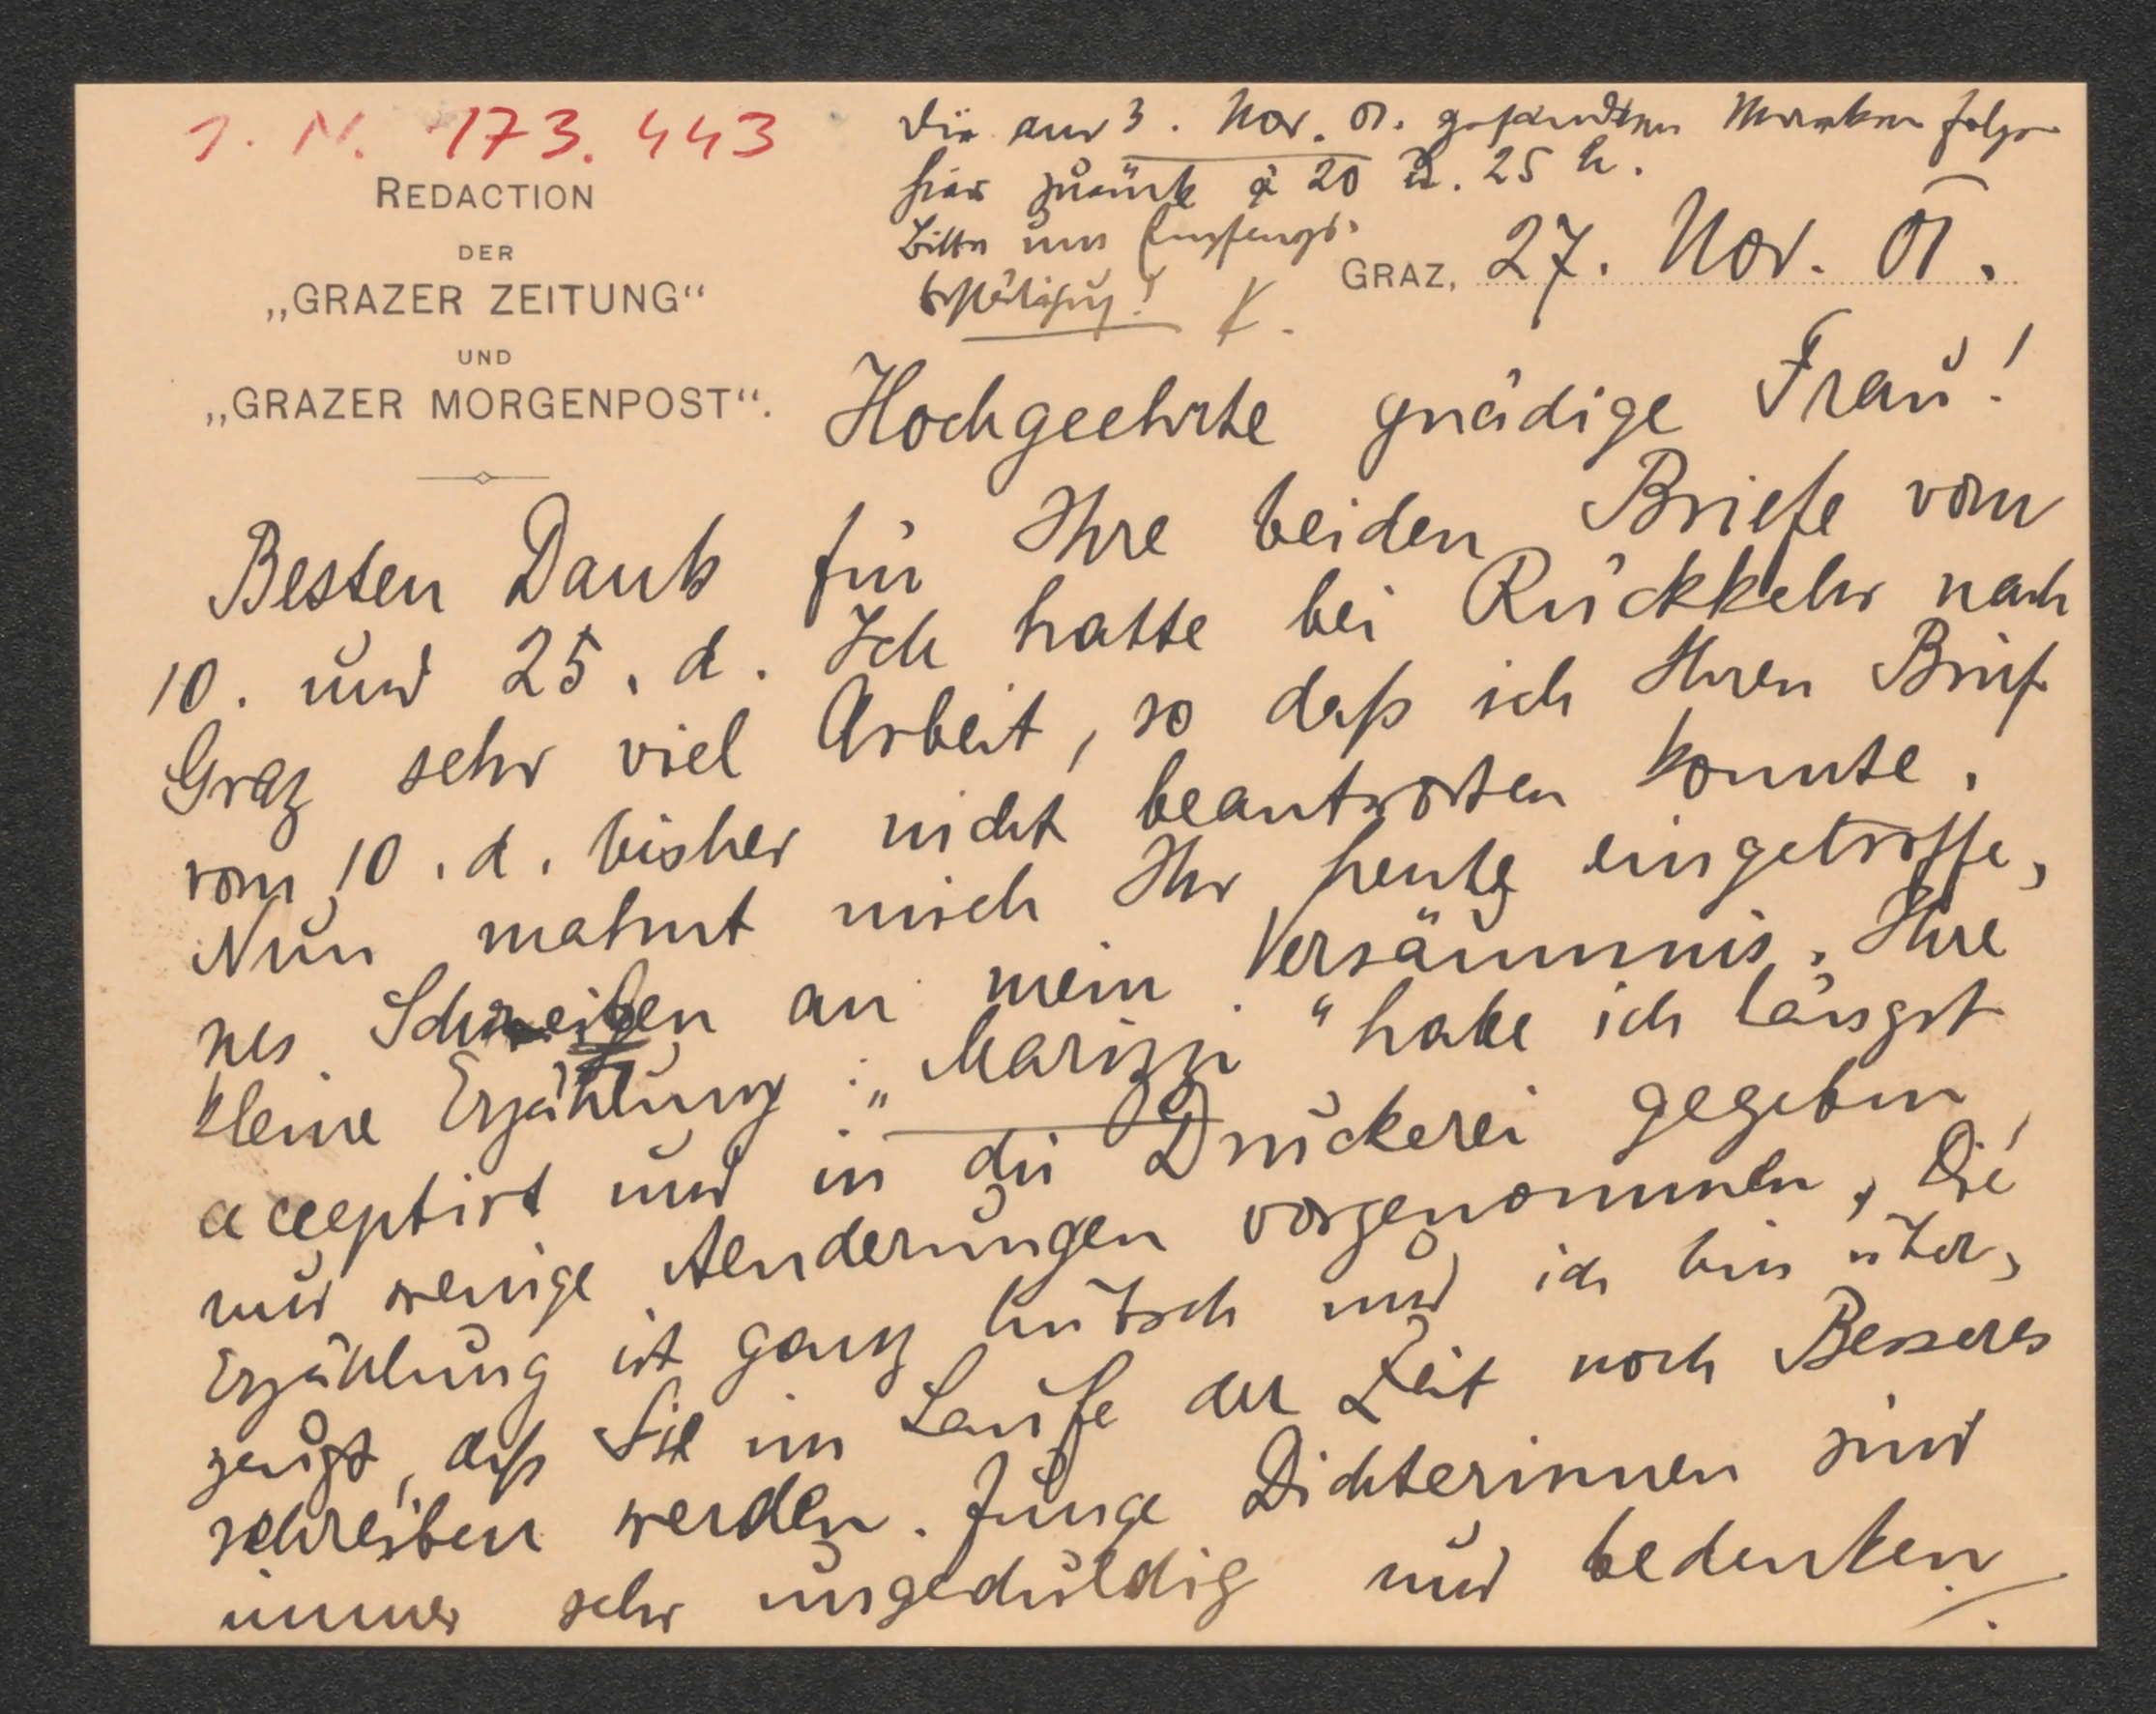 I. N. 173.443
REDACTION
DER
„GRAZER ZEITUNG“
UND
„GRAZER MORGENPOST“.
Die am 3. Nov. 01. gesandten Marken folgen
hier zurück à 20 u. 25 h.
Bitte um Empfangs-
bestätigung! K.
GRAZ, 27. Nov. 01.
Hochgeehrte gnädige Frau!
Besten Dank für Ihre beiden Briefe vom
10. und 25. d. Ich hatte bei Rückkehr nach
Graz sehr viel Arbeit, so daß ich Ihren Brief
vom 10. d. bisher nicht beantworten konnte.
Nun mahnt mich Ihr heute eingetroffe-
nes Schreiben an mein Versäumnis. Ihre
kleine Erzählung: „Marizzi“ habe ich längst
acceptirt und in die Druckerei gegeben
nur wenige Aenderungen vorgenommen, Die
Erzählung ist ganz hübsch und ich bin über-
zeugt, daß Sie im Laufe der Zeit noch Besseres
schreiben werden. Junge Dichterinnen sind
immer sehr ungeduldig und bedenken